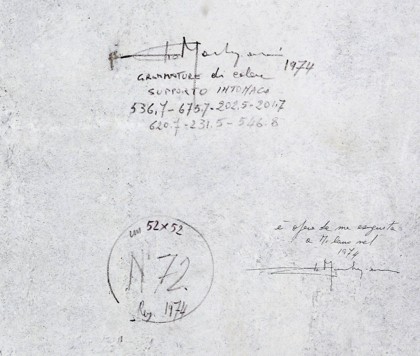 1974
GRAMMATURE di colore
SUPPORTO INTONACO
536,7-675.7-202.5-201.7
620.7-231.5-546.8
cm 52x52
N° 72
1974
è opera da me eseguita
a Milano nel
1974